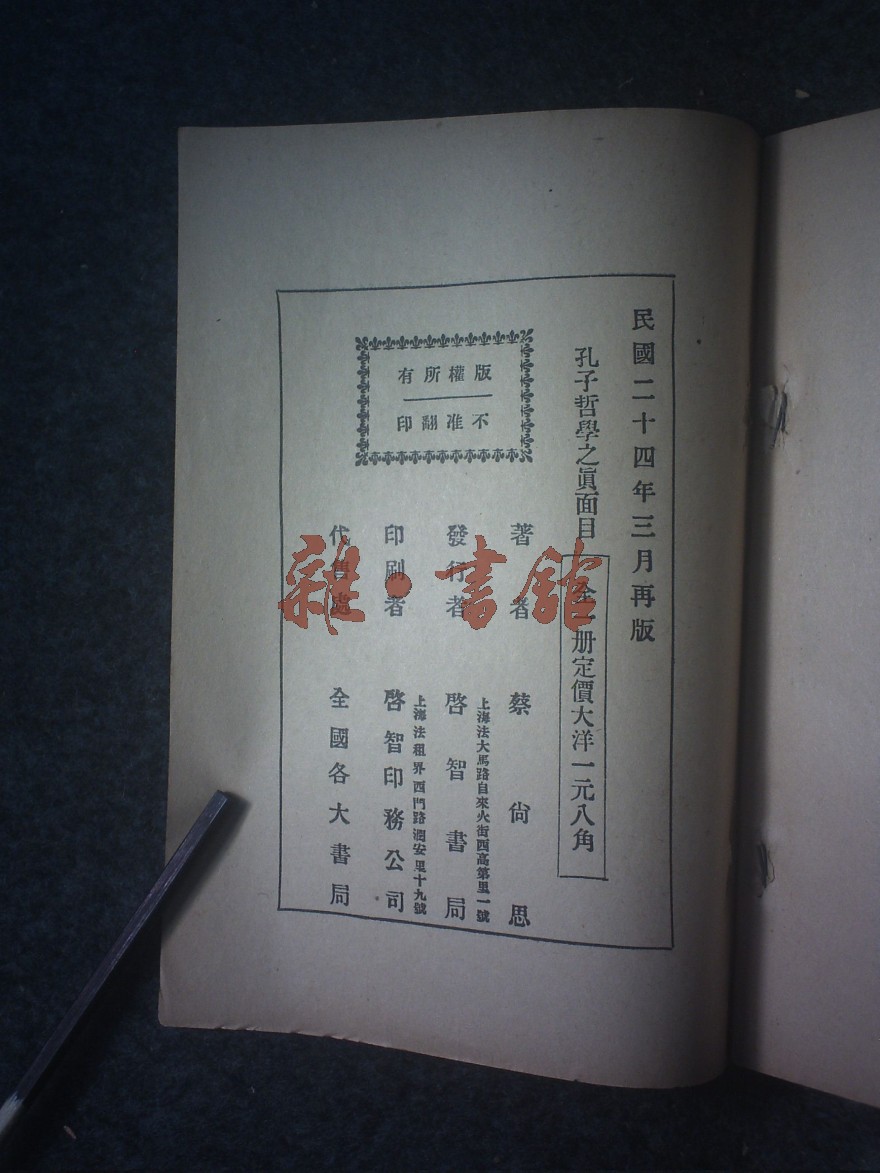 民國二十四年三月再版
孔子哲學之眞面目
全一册定價大洋一元八角
版權所有
不准翻印
著者 蔡尙思
上海法大馬路自來火街西高第里一號
發行者 啓智書局
上海法租界西門路潤安里十九號
印刷者 啓智印務公司
代售處 全國各大書局
雜·書館